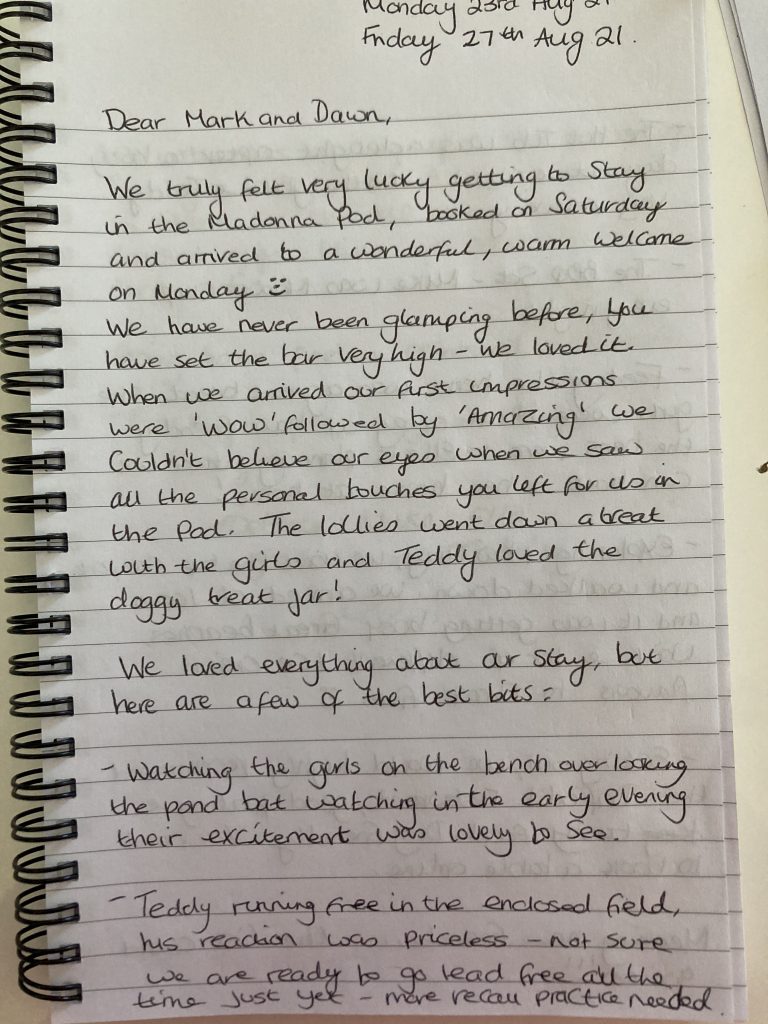 Monday 23rd Aug 21
Friday 27th Aug 21.
Dear Mark and Dawn,
We truly felt very lucky getting to stay
in the Madonna Pod, booked on Saturday
and arrived to a wonderful, warm welcome
on Monday
We have never been glamping before, you
have set the bar very high - we loved it.
When we arrived our first impressions
were 'WOW' followed by 'Amazing' we
couldn't believe our eyes when we saw
all the personal touches you left for us in
the pod. The lollies went down a treat
with the girls and Teddy loved the
doggy treat jar!
We loved everything about our stay, but
here are a few of the best bits:
- Watching the girls on the bench overlooking
the pond bat watching in the early evening
their excitement was lovely to see.
- Teddy running free in the enclosed field,
his reaction was priceless - not sure
we are ready to go lead free all the
time just yet - more recall practice needed.